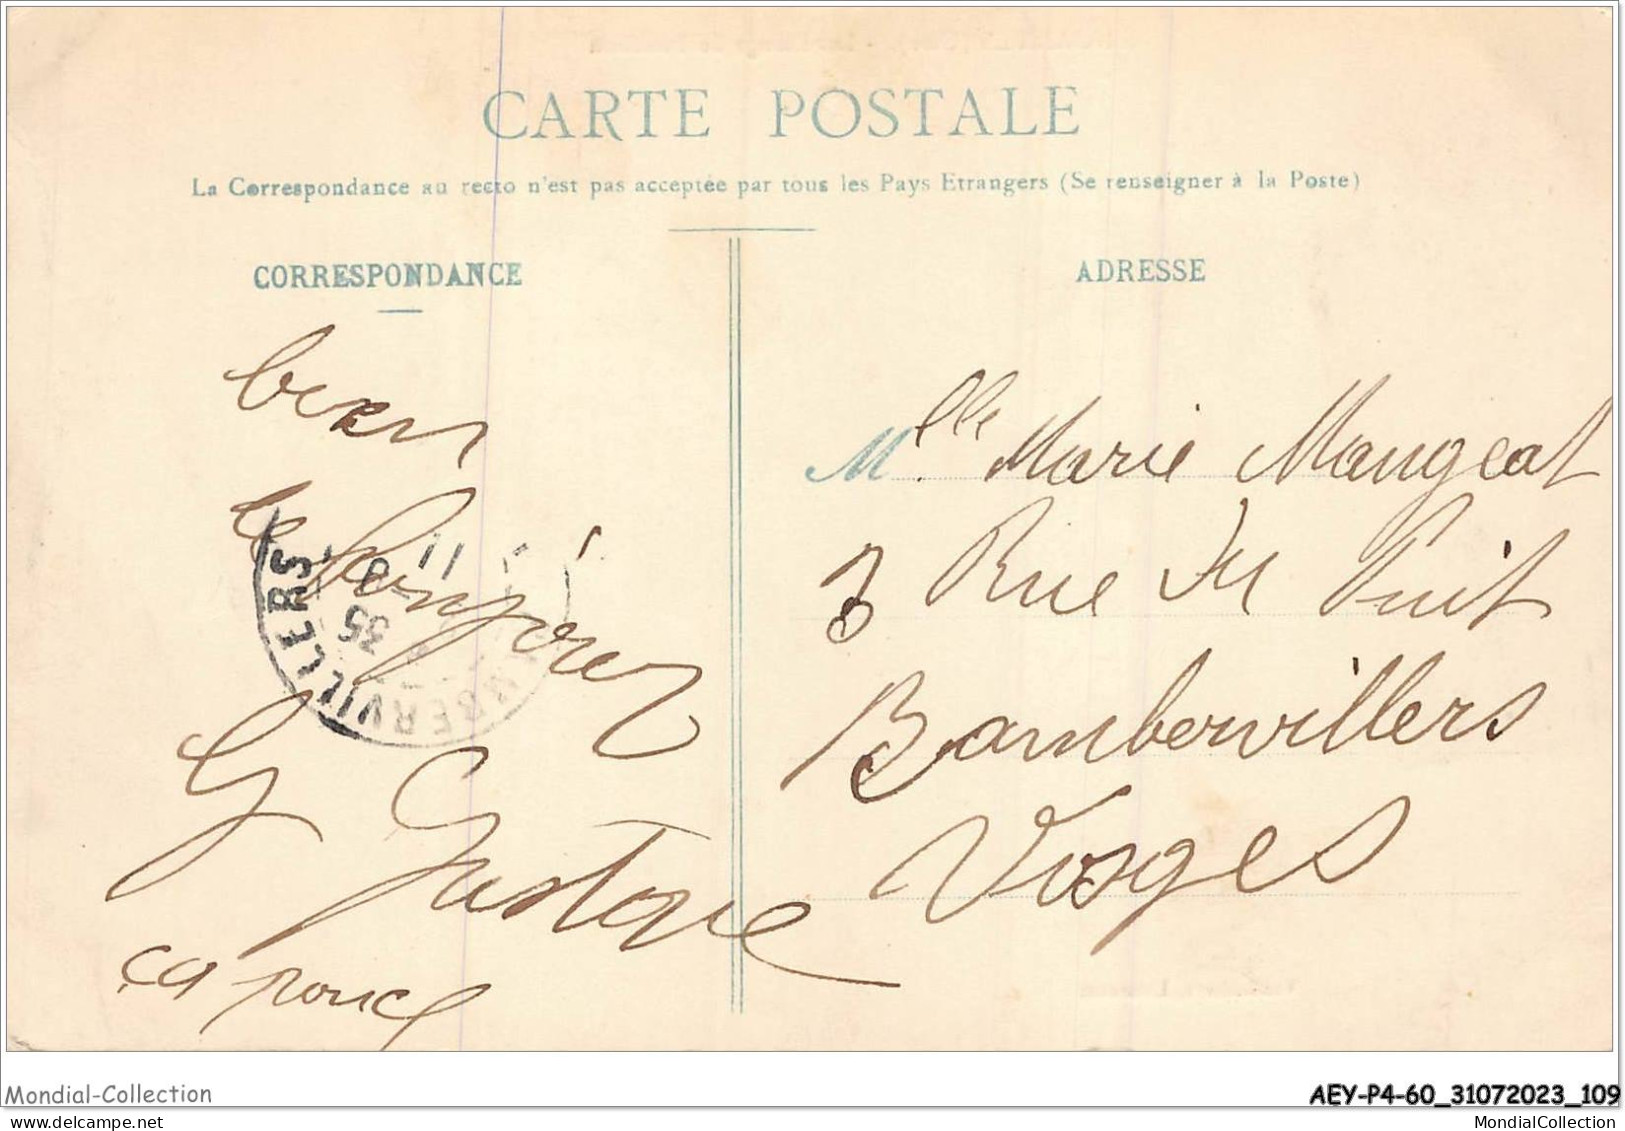 CARTE POSTALE
La Correspondance au recto n'est pas acceptée par tous les Pays Etrangers (Se renseigner à la Poste)
CORRESPONDANCE
bien
le bonjour
G Gustave
ADRESSE
Mlle Marie Mangeat
3 Rue du Puit
Rambervillers
Vosges
RAMBERVILLERS
11
35
Mondial-Collection
AEY-P4-60_31072023_109
MondialCollection.com
MondialCollection